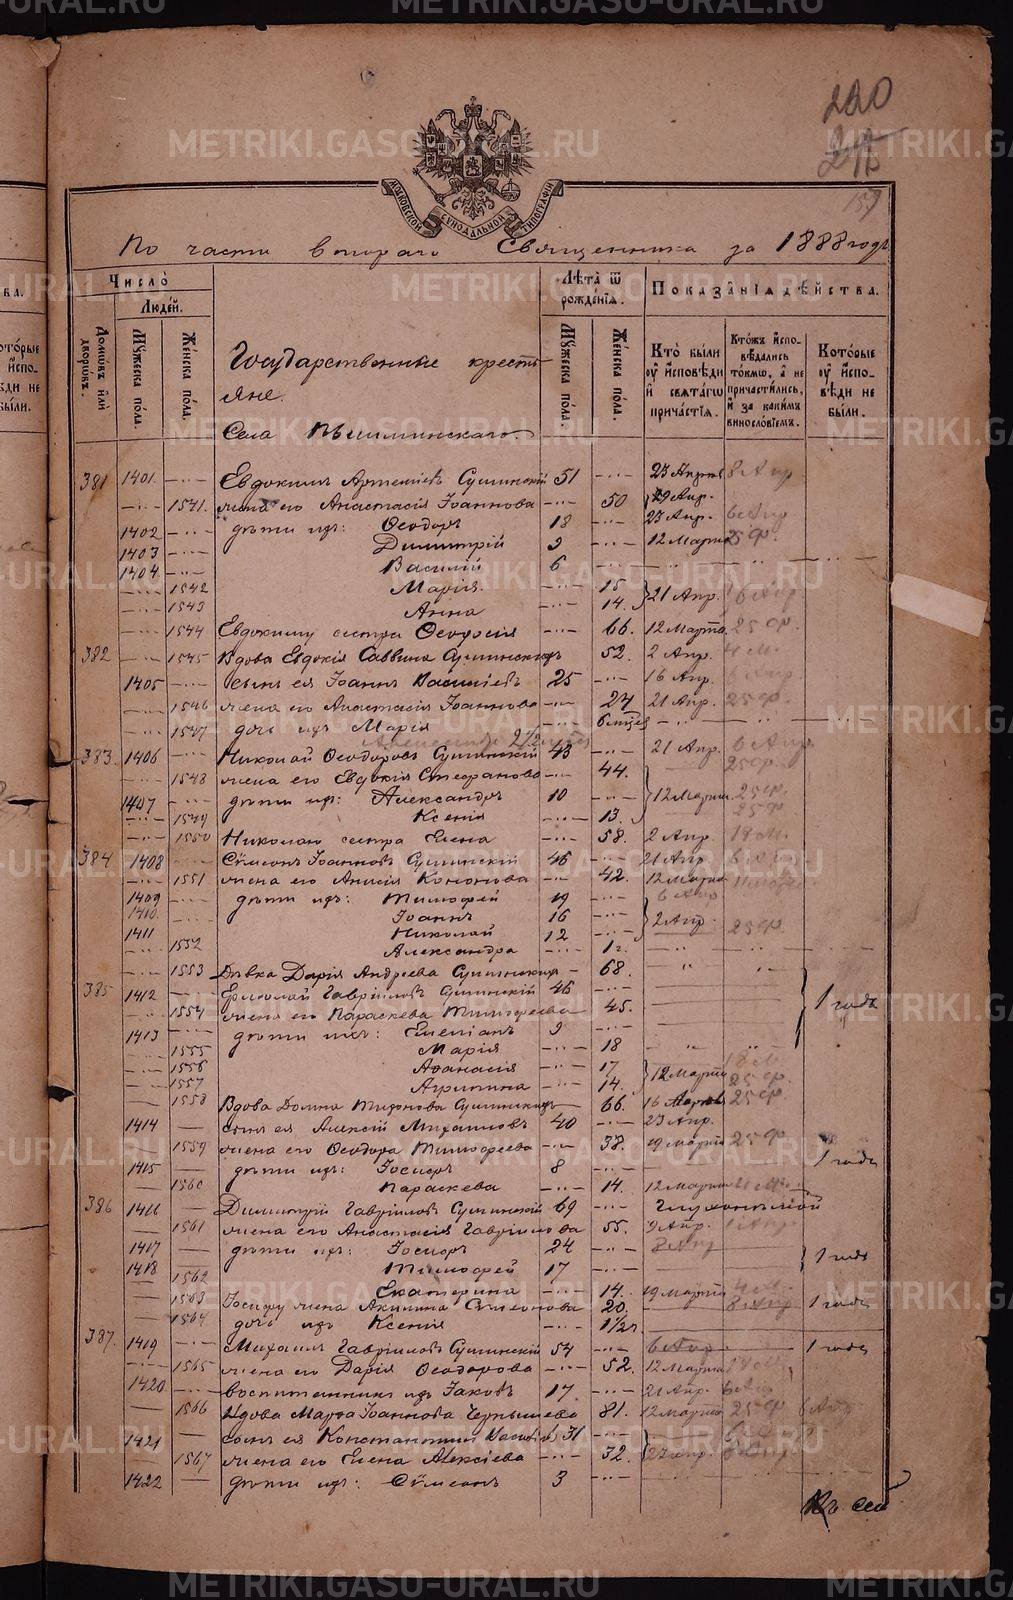 220
157
МОСКОВСКОЙ СѴНОДАЛЬНОЙ ТИПОГРАФІИ
По части втораго Священника за 1888 годъ
Число̀
Людей.
Домѡвъ или дворѡвъ.
Мꙋжеска пола.
Женска пола.
Государственные кресть-
яне.
Села Пышминскаго.
Лѣта ѿ рожденїѧ.
Мꙋжеска пола.
Женска пола.
Показанїѧ дѣйства.
Кто были ꙋ исповѣди и свѧтагѡ причастїѧ.
Ктожъ исповѣдались токмѡ, а не причастились, и за какимъ винословїемъ.
Которые ꙋ исповѣди не были.
381 1401 Евдокимъ Артемьевъ Сушинскій 51 23 Апрѣля 8 Апр
1541 жена его Анастасія Іоаннова 50 29 Апр.
1402 дѣти ихъ: Ѳеодоръ 18 23 Апр. 6 Апр
1403 Димитрій 9 12 Марта 25 Ф.
1404 Василій 6
1542 Марія 15
1543 Анна 14. 21 Апр. 6 Апр.
1544 Евдокиму сестра Ѳеодосія 66. 12 Марта 25 Ф.
382 1545 Вдова Евдокія Саввина Сушинскихъ 52. 2 Апр. 4 М.
1405 сынъ ея Іоаннъ Васильевъ 25 16 Апр. 6 Апр.
1546 жена его Анастасія Іоаннова 27 21 Апр. 25 Ф.
1547 дочь ихъ Марія 6 мцев
383. 1406 Николай Ѳеодоровъ Сушинскій 43 21 Апр. 6 Апр.
1548 жена его Евдокія Стефанова 44. 25 Ф.
1407 дѣти ихъ: Александръ 10 12 Марта 25 Ф.
1549 Ксенія 13. 25 Ф
1550 Николаю сестра Елена 58. 2 Апр. 18 М.
384 1408 Сѵмеонъ Іоанновъ Сушинскій 46 21 Апр. 6 Апр.
1551 жена его Анисія Кононова 42. 12 Марта
1409 дѣти ихъ: Тимофей 19 6 Апр
1410. Іоаннъ 16
1411 Николай 12 2 Апр. 25 Ф.
1552 Александра 1 г.
1553 Дѣвка Дарія Андреева Сушинскихъ 68.
385 1412 Ермолай Гавріиловъ Сушинскій 46 1 годъ
1554 жена его Параскева Тимофеева 45.
1413 дѣти ихъ: Емеліанъ 9
1555 Марія 18
1556 Аѳанасія 17 18 М.
1557 Агрипина 14. 12 Марта 25 Ф.
1558 Вдова Домна Тихонова Сушинскихъ 66. 16 Марта 25 Ф.
1414 сынъ ея Алексій Михаиловъ 40 23 Апр.
1559 жена его Ѳеодора Тимофеева 38. 19 Марта 25 Ф
1415 дѣти ихъ: Іосифъ 8 1 годъ
1560 Параскева 14. 12 Марта 4 М.
386 1416 Димитрій Гавріиловъ Сушинскій 69 Глухонѣмой
1561 жена его Анастасія Гавріилова 55. 9 Апр. 6 Апр
1417 дѣти ихъ: Іосифъ 24 8 Апр
1418 Тимофей 17 1 годъ
1562 Екатерина 14. 19 Марта 4 М.
1563 Іосифу жена Акилина Симеонова 20. 8 Апр 1 годъ
1564 дочь ихъ Ксенія 1½ г.
387. 1419 Михаилъ Гавріиловъ Сушинскій 54 6 Апр 1 годъ
1565 жена его Дарія Ѳеодорова 52. 12 Марта 18 М.
1420 воспитанникъ ихъ Іаковъ 17. 21 Апр. 6 Апр
1566 Вдова Марѳа Іоаннова Чернышева 81. 12 Марта 25 Ф 6 Апр
1421 сынъ ея Константинъ 31
1567 жена его Елена Алексіева 32. 23 Апр.
1422 дѣти ихъ: Сѵмеонъ 3
Къ сей
METRIKI.GASO-URAL.RU